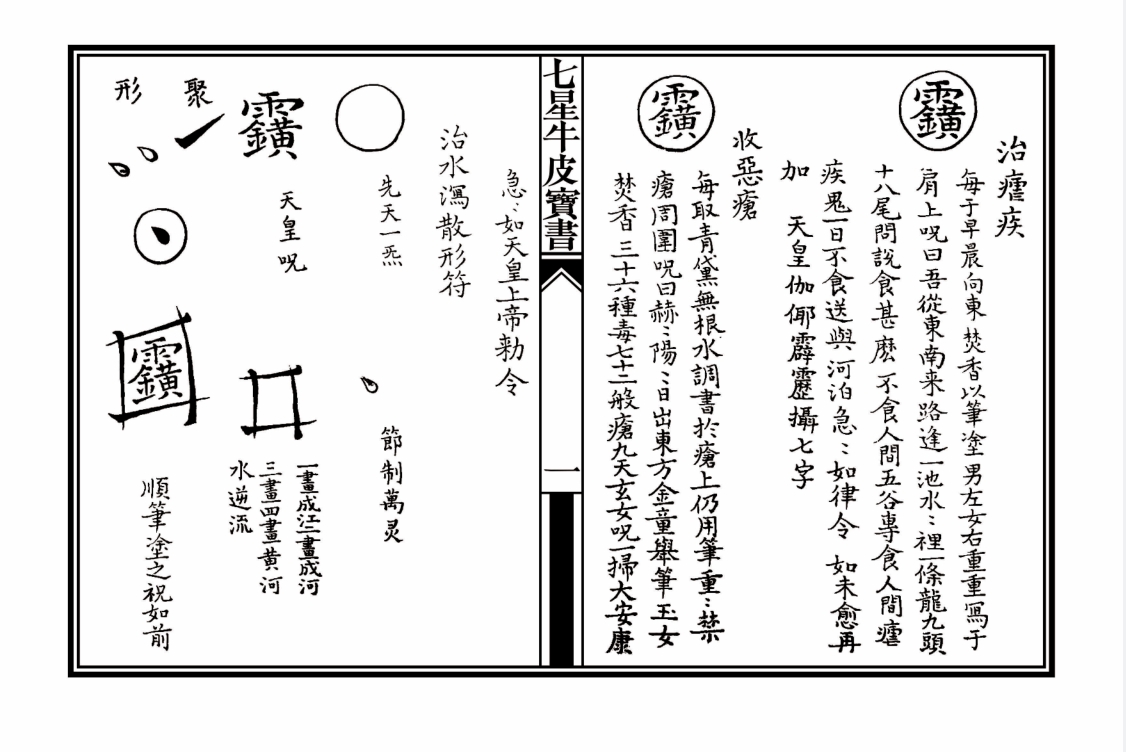 治瘧疾
每于早晨向東焚香以筆塗男左女右重重寫于
肩上呪曰吾從東南来路逢一池水〻裡一條龍九頭
十八尾問說食甚麽不食人間五谷專食人間瘧
疾鬼一日不食送與河泊急〻如律令 如未愈再
加 天皇伽倻霹靂攝七字
收惡瘡
每取青黛無根水調書於瘡上仍用筆重〻禁
瘡周圍呪曰赫〻陽〻日出東方金童舉筆玉女
焚香三十六種毒七十二般瘡九天玄女呪一掃大安康
七星牛皮寶書
一
急〻如天皇上帝勅令
治水瀉散形符
先天一炁
節制萬灵
天皇呪
一畫成江二畫成河
三畫四畫黄河
水逆流
聚
形
順筆塗之祝如前